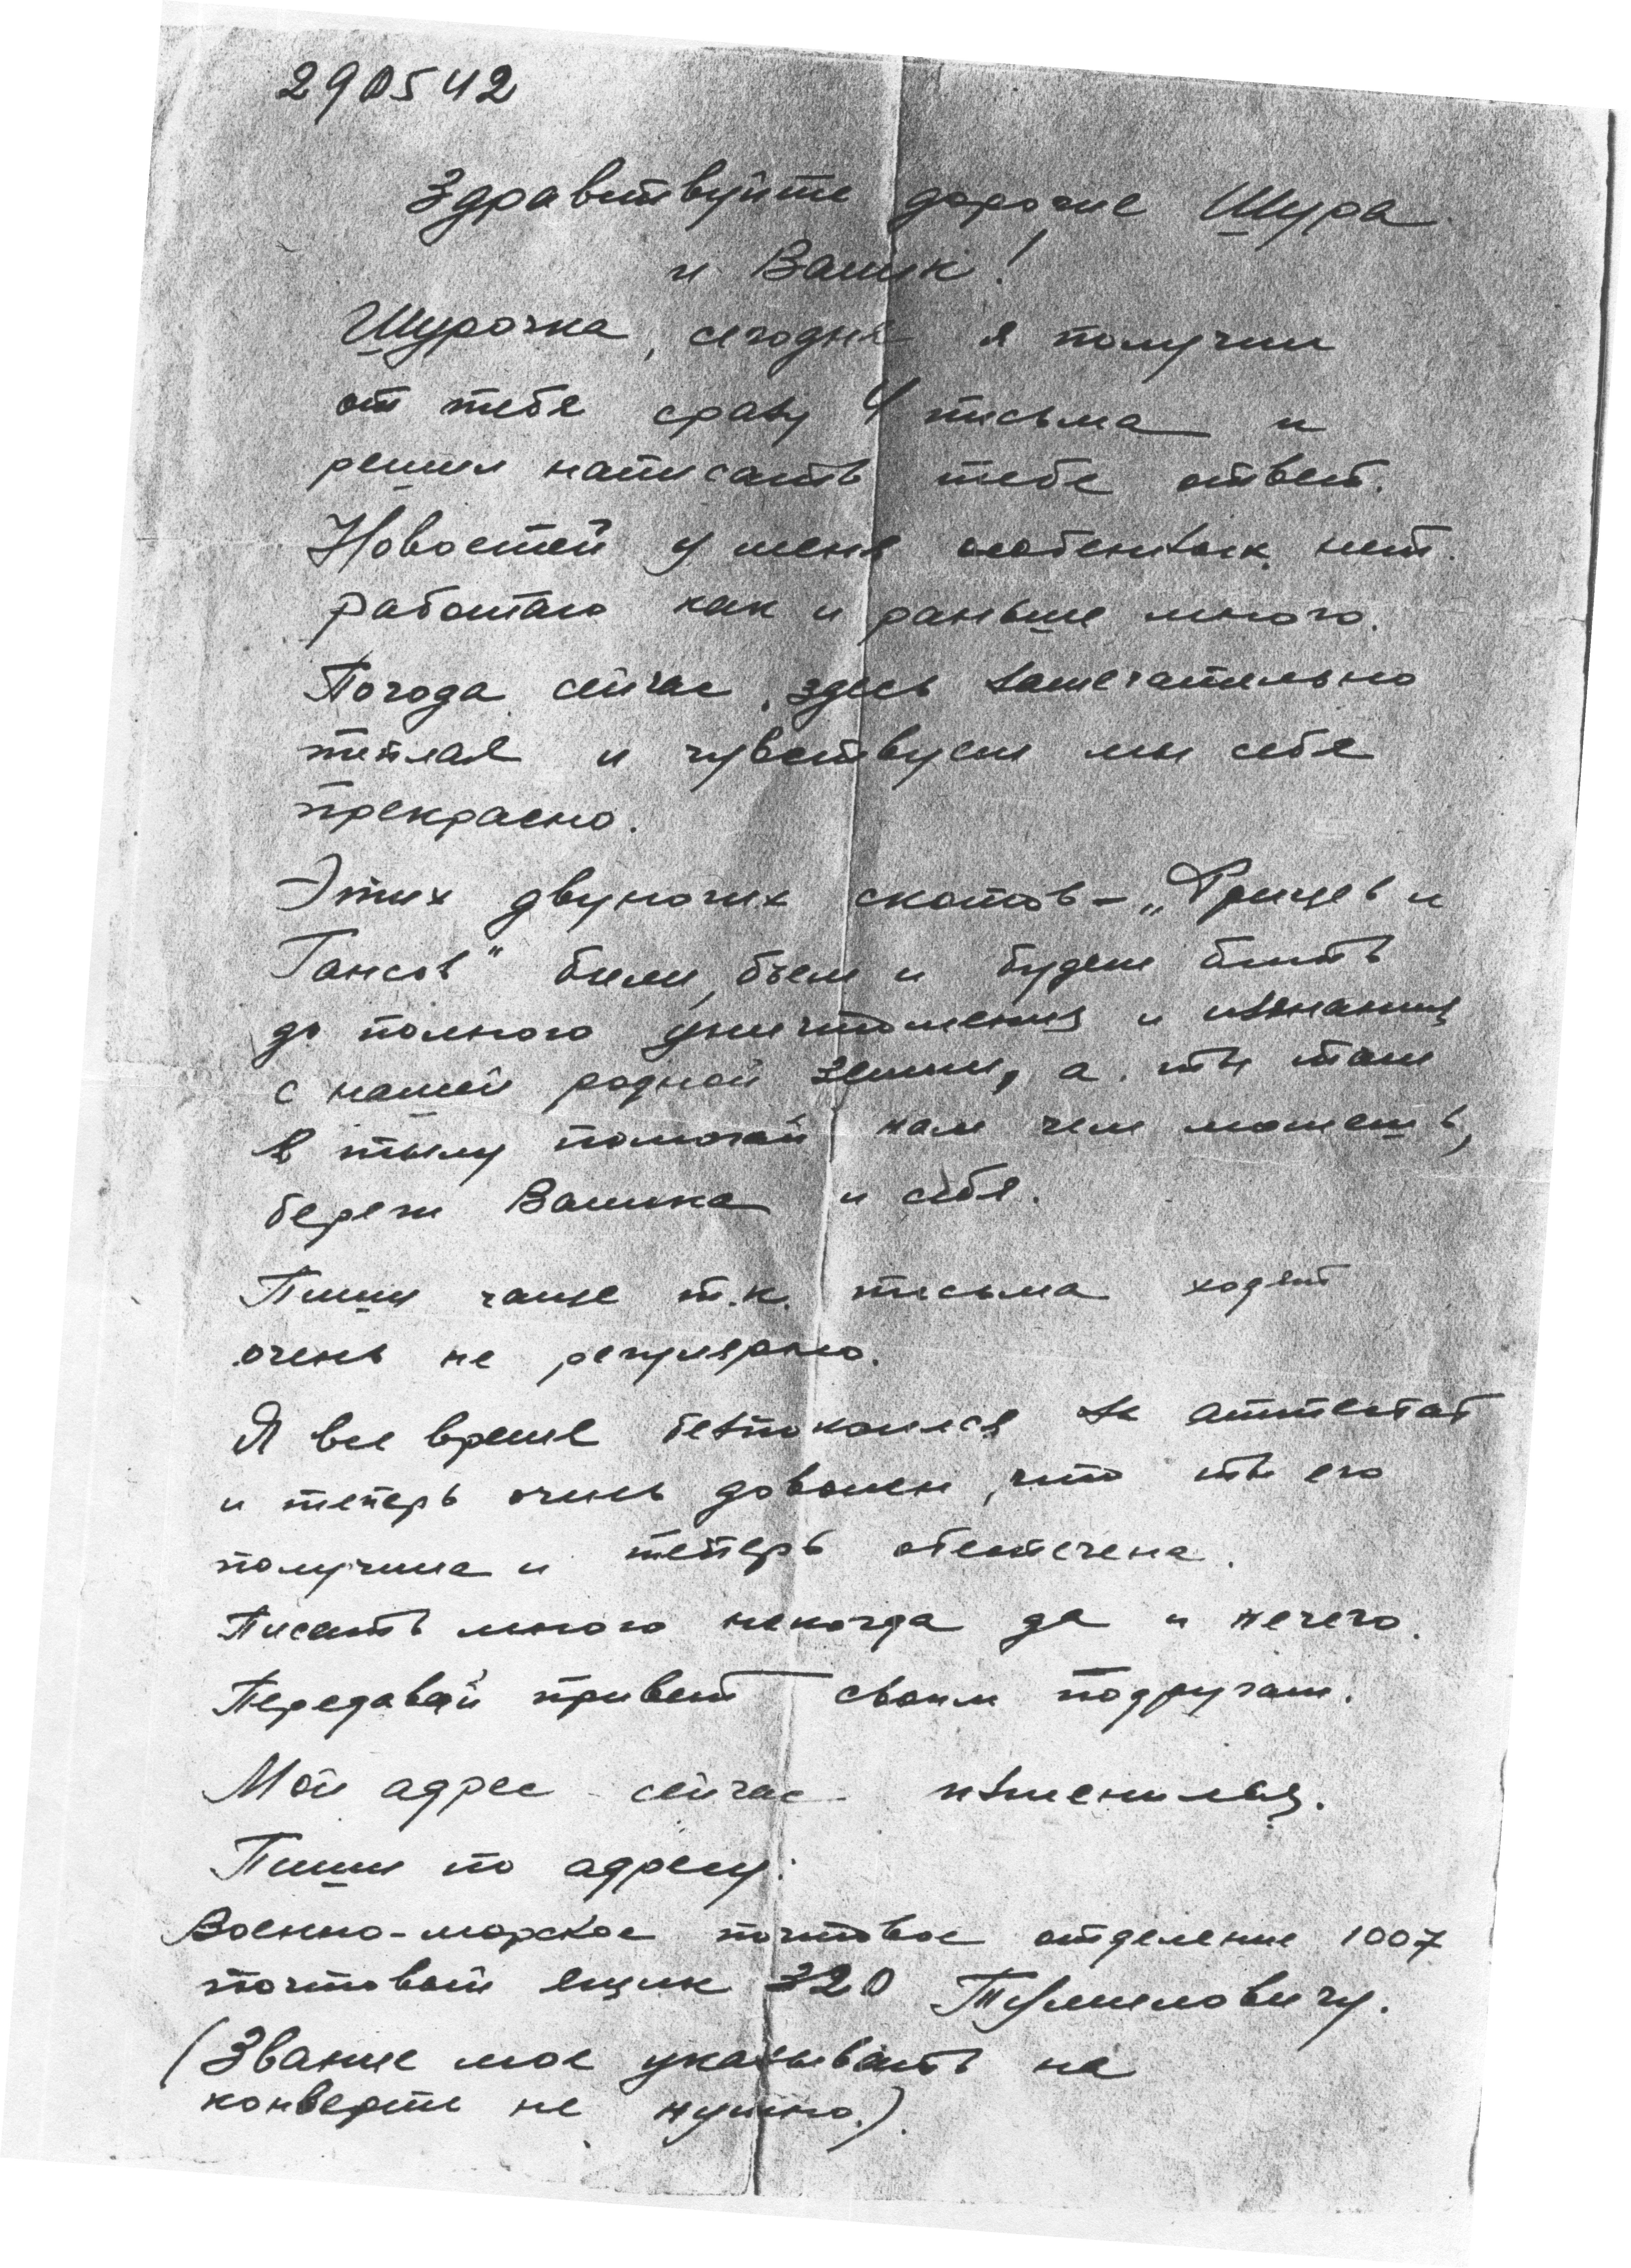 290542
Здравствуйте дорогие Шура
и Валик!
Шурочка, сегодня я получил
от тебя сразу 4 письма и
решил написать тебе ответ.
Новостей у меня особенных нет.
Работаю как и раньше много.
Погода сейчас здесь замечательно
теплая и чувствуем мы себя
прекрасно.
Этих двуногих скотов – „Фрицев и
Гансов" били, бьем и будем бить
до полного уничтожения и изгнания
с нашей родной земли, а ты там
в тылу помогай нам чем можешь,
береги Валика и себя.
Пиши чаще т.к. письма ходят
очень не регулярно.
Я все время безпокоился за аттестат
и теперь очень доволен, что ты его
получила и теперь обеспечена.
Писать много некогда да и нечего.
Передавай привет своим подругам.
Мой адрес сейчас изменился.
Пиши по адресу:
Военно-морское почтовое отделение 1007
почтовый ящик 320
(Звание мое указывать на
конверте не нужно.)